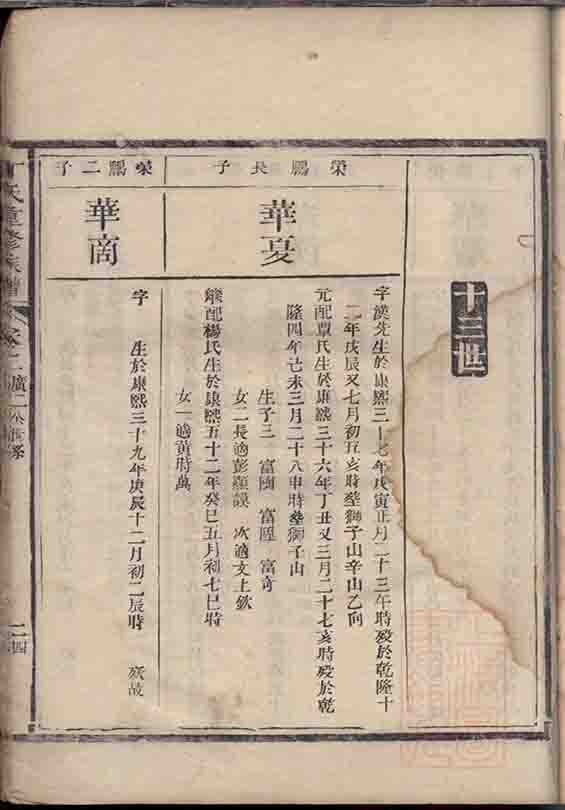 十三世
榮鵬長子
華夏
字漢先生於康熙三十七年戊寅正月二十三午時歿於乾隆十
二年戊辰又七月初五亥時塟獅子山辛山乙向
元配覃氏生於康熙三十六年丁丑又三月二十七亥時歿於乾
隆四年己未三月二十八申時塟獅子山
生子三 富國 富陞 富奇
女二長適彭顯謨 次適文上欽
繼配楊氏生於康熙五十二年癸巳五月初七巳時
女一適黃時萬
榮鵬二子
華商
字 生於康熙三十九年庚辰十二月初二辰時 歿故
丁氏重修族譜
卷二廣二公世系
二四